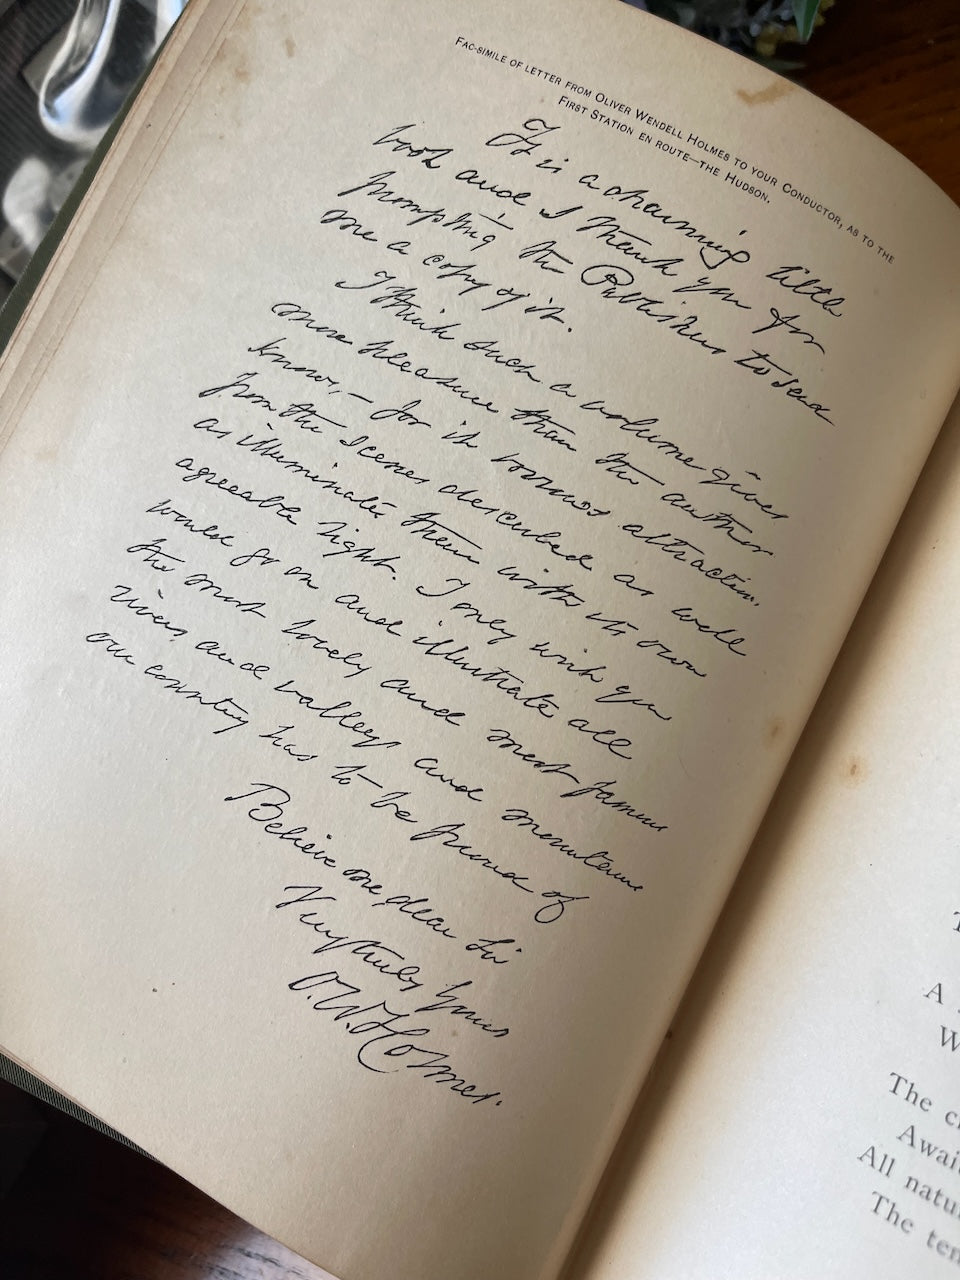 FAC-SIMILE OF LETTER FROM OLIVER WENDELL HOLMES TO YOUR CONDUCTOR, AS TO THE
FIRST STATION EN ROUTE—THE HUDSON.
It is a charming little
book and I thank you for
prompting the Publishers to send
me a copy of it.
I think such a volume gives
more pleasure than the author
knows, – for it borrows attraction
from the scenes described as well
as illuminates them with its own
agreeable light. I only wish you
would go on and illustrate all
the most lovely and most famous
rivers and valleys and mountains
our country has to be proud of
Believe me dear Sir
Very truly yours
O. W. Holmes.
A
W
The c
Awai
All natu
The ten